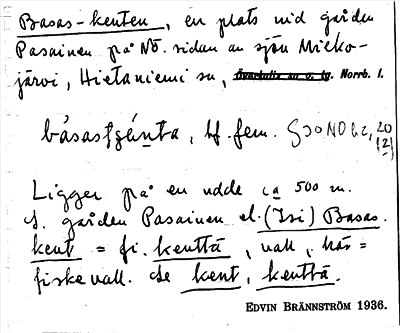 Basas-kenten, en plats vid gården
Pasainen på NÖ. sidan av sjön Mieko-
järvi, Hietaniemi sn, Norrb. l.
básastgénta, bf. fem.
Ligger på en udde ca 500 m.
S. gården Pasainen el. (Isi) Basas.
kent = fi. kenttä, vall, här =
fiskevall. Se kent, kenttä.
EDVIN BRÄNNSTRÖM 1936.